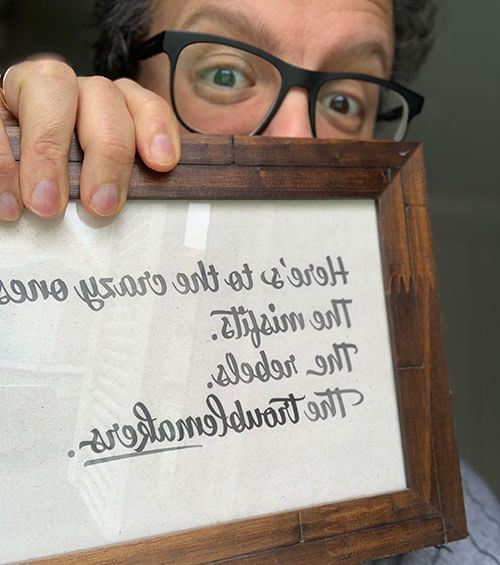 Here's to the crazy ones
The misfits.
The rebels.
The troublemakers.